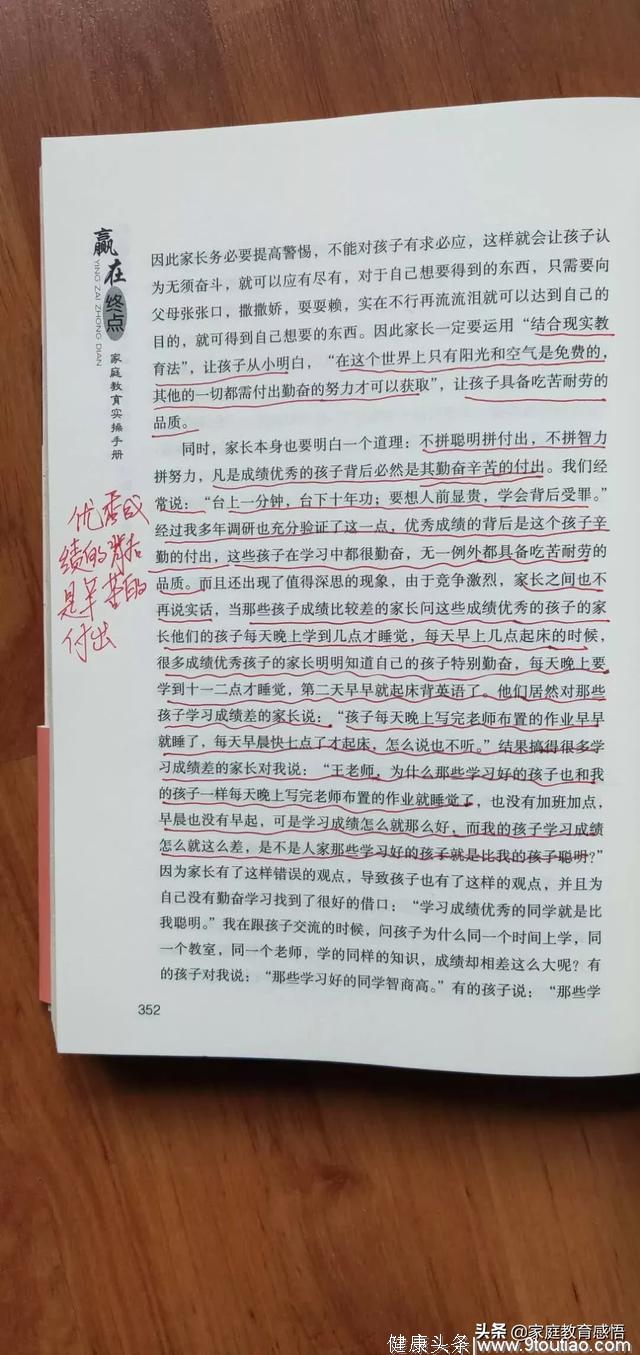 赢在终点
YING ZAI ZHONG DIAN
家庭教育实操手册
因此家长务必要提高警惕，不能对孩子有求必应，这样就会让孩子认
为无须奋斗，就可以应有尽有，对于自己想要得到的东西，只需要向
父母张张口，撒撒娇，耍耍赖，实在不行再流流泪就可以达到自己的
目的，就可得到自己想要的东西。因此家长一定要运用“结合现实教
育法”，让孩子从小明白，“在这个世界上只有阳光和空气是免费的，
其他的一切都需付出勤奋的努力才可以获取”，让孩子具备吃苦耐劳的
品质。
同时，家长本身也要明白一个道理：不拼聪明拼付出，不拼智力
拼努力，凡是成绩优秀的孩子背后必然是其勤奋辛苦的付出。我们经
常说：“台上一分钟，台下十年功；要想人前显贵，学会背后受罪。”
经过我多年调研也充分验证了这一点，优秀成绩的背后是这个孩子辛
勤的付出，这些孩子在学习中都很勤奋，无一例外都具备吃苦耐劳的
品质。而且还出现了值得深思的现象，由于竞争激烈，家长之间也不
再说实话，当那些孩子成绩比较差的家长问这些成绩优秀的孩子的家
长他们的孩子每天晚上学到几点才睡觉，每天早上几点起床的时候，
很多成绩优秀孩子的家长明明知道自己的孩子特别勤奋，每天晚上要
学到十一二点才睡觉，第二天早早就起床背英语了。他们居然对那些
孩子学习成绩差的家长说：“孩子每天晚上写完老师布置的作业早早
就睡了，每天早晨快七点了才起床，怎么说也不听。”结果搞得很多学
习成绩差的家长对我说：“王老师，为什么那些学习好的孩子也和我
的孩子一样每天晚上写完老师布置的作业就睡觉了，也没有加班加点，
早晨也没有早起，可是学习成绩怎么就那么好，而我的孩子学习成绩
怎么就这么差，是不是人家那些学习好的孩子就是比我的孩子聪明？”
因为家长有了这样错误的观点，导致孩子也有了这样的观点，并且为
自己没有勤奋学习找到了很好的借口：“学习成绩优秀的同学就是比
我聪明。”我在跟孩子交流的时候，问孩子为什么同一个时间上学，同
一个教室，同一个老师，学的同样的知识，成绩却相差这么大呢？有
的孩子对我说：“那些学习好的同学智商高。”有的孩子说：“那些学
优秀成
绩的背后
是辛苦的
付出
352
头条 @家庭教育感悟
健康头条 www.9toutiao.com